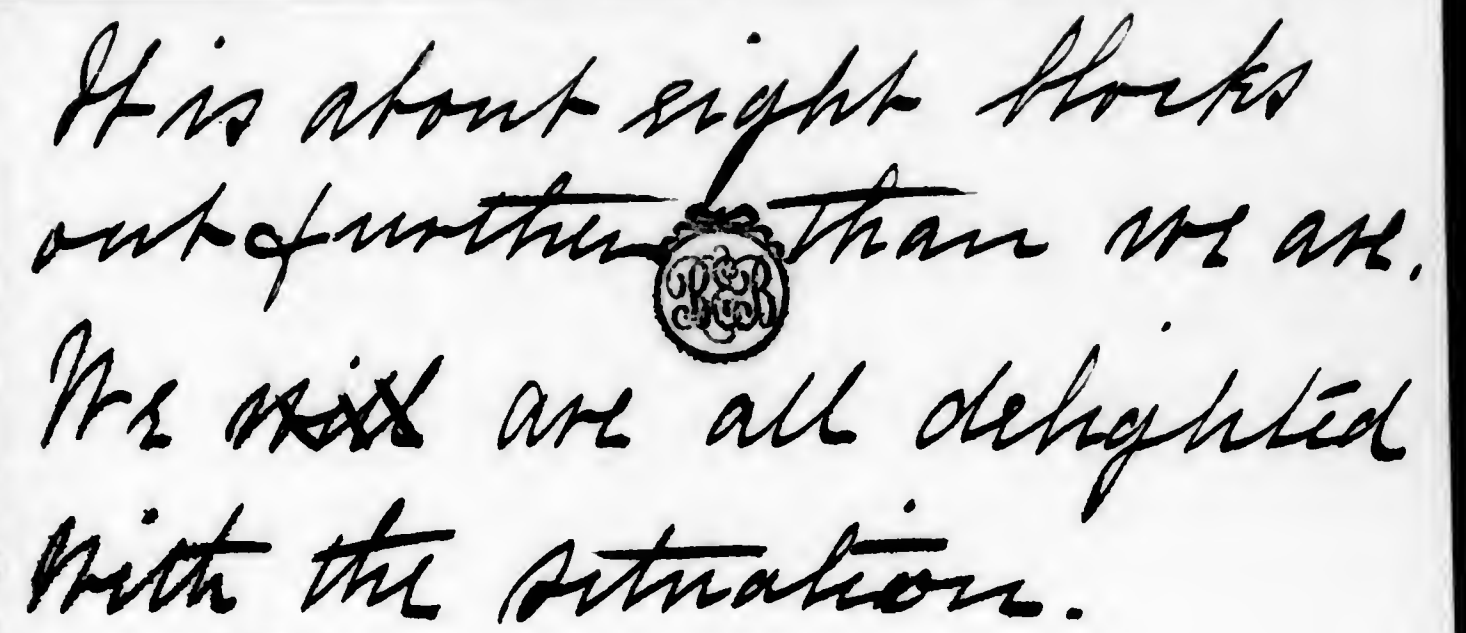 It is about eight blocks
out further than we are.
R&R
We will are all delighted
with the situation.